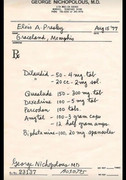 GEORGE NICHOPOLOUS, M.D.
Elvis A. Presley Aug 15 '77
Graceland, Memphis
Rx
Dilaudid - 50 - 4 mg tab.
- 20 cc - 2 mg sol.
Quaalude 150 - 300 mg tab.
Dexedrine 100 - 5 mg tab.
Percodan 100, tab.
Amytal - 100 - 3 grain caps
12 half gram amps.
Biphetamine - 100, 20 mg spansules
George Nichopolous MD